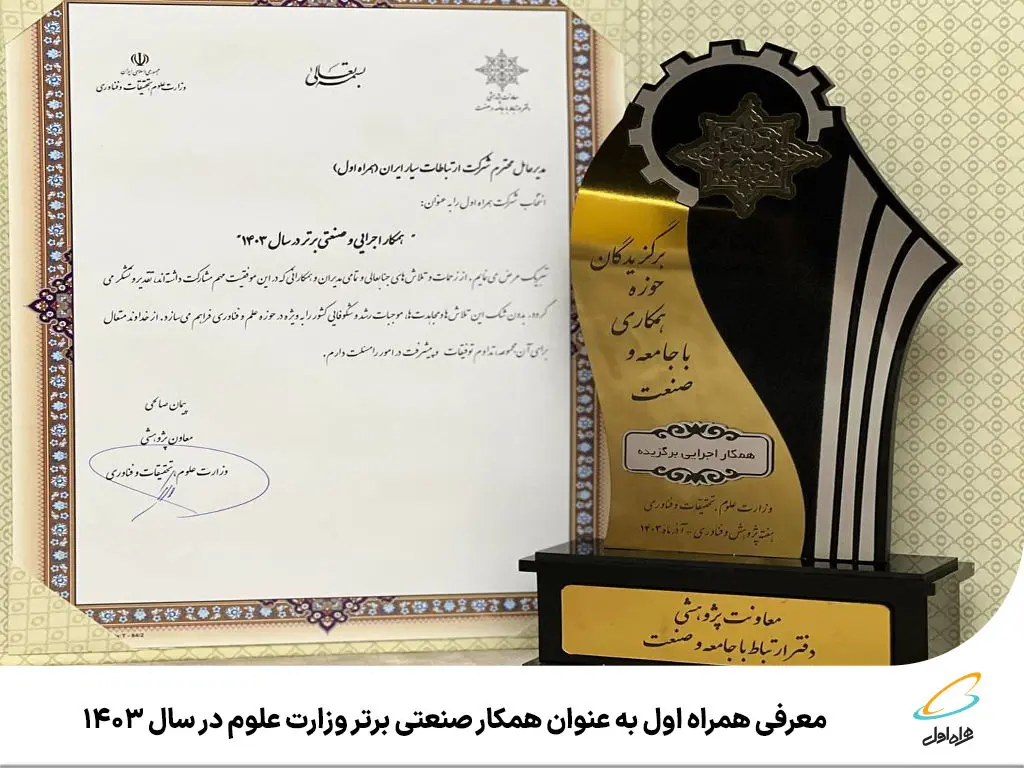 جمهوری اسلامی ایران
وزارت علوم، تحقیقات و فناوری
بسمه تعالی
معاونت پژوهشی
دفتر ارتباط با جامعه و صنعت
مدیرعامل محترم شرکت ارتباطات سیار ایران (همراه اول)
انتخاب شرکت همراه اول را به عنوان:
"همکار اجرایی و صنعتی برتر در سال ۱۴۰۳"
تبریک عرض می نمایم. از زحمات و تلاش های جنابعالی و تمامی مدیران و همکارانی که در این موفقیت مهم مشارکت داشته‌اند، تقدیر و تشکر می
گردد. بدون شک این تلاش‌ها و مجاهدت‌ها، موجبات رشد و شکوفایی کشور را به ویژه در حوزه علم و فناوری فراهم می‌سازد. از خداوند متعال
برای آن مجموعه، تداوم توفیقات و پیشرفت در امور را مسئلت دارم.
پیمان صالحی
معاون پژوهشی
وزارت علوم، تحقیقات و فناوری
برگزیدگان
حوزه
همکاری
با جامعه و
صنعت
همکار اجرایی برگزیده
وزارت علوم، تحقیقات و فناوری
هفته پژوهش و فناوری - آذر ماه ۱۴۰۳
معاونت پژوهشی
دفتر ارتباط با جامعه و صنعت
معرفی همراه اول به عنوان همکار صنعتی برتر وزارت علوم در سال ۱۴۰۳
همراه اول